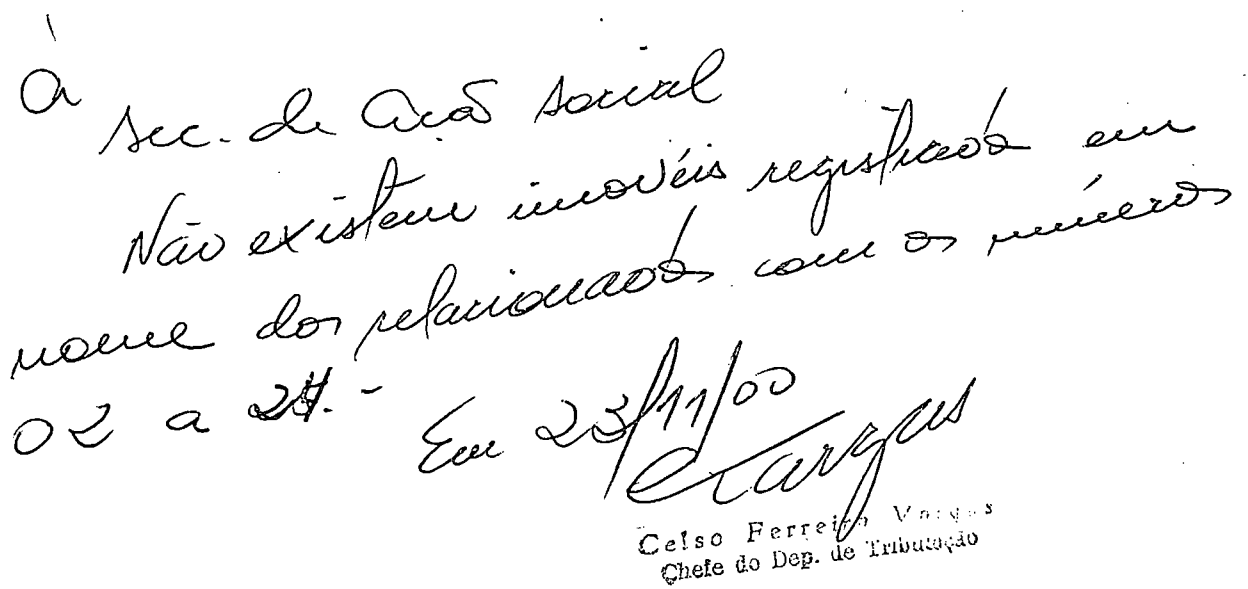 À
Sec. de Ação Social
Não existem imovéis registrados em
nome dos relacionados com os números
02 a
Em 23/11/00
CVargas
Celso Ferreira Vargas
Chefe do Dep. de Tributação